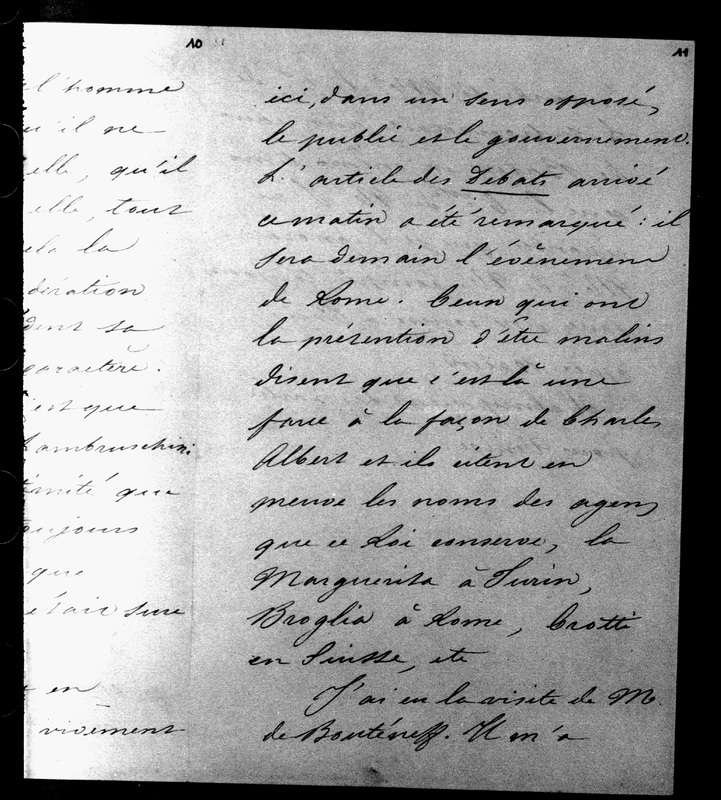 10
l'homme
qu'il ne
elle, qu'il
elle, tout
cela la
sa
caractère.
que
Lambruschini
que
toujours
que
était sure
en
vivement
11
ici, dans un sens opposé,
le public et le gouvernement.
L'article des Débats arrivé
ce matin a été remarqué: il
sera demain l'évènement
de Rome. Ceux qui ont
la prétention d'être malins
disent que c'est là une
farce à la façon de Charles
Albert et ils citent en
preuve les noms des agens
que ce Roi conserve, la
Marguerita à Turin,
Broglia à Rome, Crotti
en Suisse, etc
J'ai eu la visite de M.
de Bouténeff. Il m'a